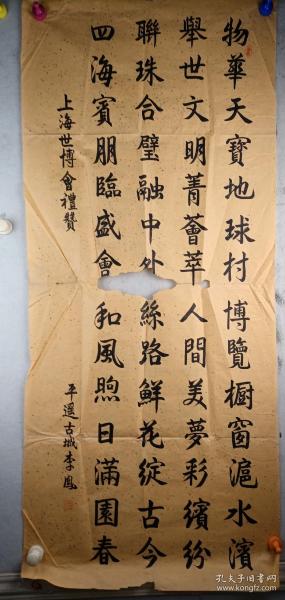 物華天寶地球村博覽橱窗滬水濱
舉世文明菁薈萃人間美夢彩繽紛
聯珠合璧融中外絲路鮮花綻古今
四海賓朋臨盛會和風煦日滿園春
上海世博會禮贊
平遥古城李鳳
孔夫子旧书网
www.kongfz.com